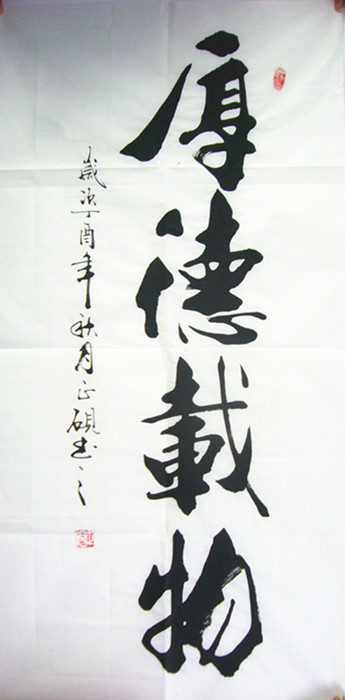 厚德載物
歲次丁酉年秋月正硯书之